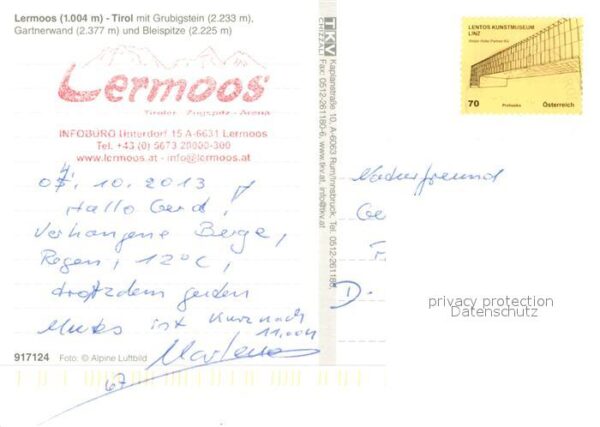 Lermoos (1.004 m) - Tirol mit Grubigstein (2.233 m),
Gartnerwand (2.377 m) und Bleispitze (2.225 m)
Lermoos
Tiroler Zugspitz-Arena
INFOBÜRO Unterdorf 15 A-6631 Lermoos
Tel. +43 (0) 5673 20000-300
www.lermoos.at - info@lermoos.at
10. 2013
Hallo Gerd!
Verhangene Berge,
Regen, 12°C,
trotzdem guten
Mutes ist kurz nach
11.00h
Marlene
67
917124 Foto: © Alpine Luftbild
TKV
Kaplanstraße 10, A-6063 Rum/Innsbruck, Tel. 0512-261188,
Fax: 0512-261180-6, www.tkv.at, info@tkv.at
LENTOS KUNSTMUSEUM
LINZ
70 Österreich
Naturfreund
Ge
F
D.
privacy protection
Datenschutz